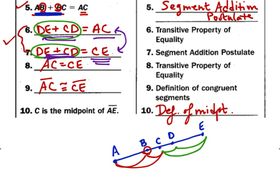 5. AB + BC = AC
6. DE + CD = AC
7. DE + CD = CE
8. AC = CE
9. AC ≅ CE
10. C is the midpoint of AE.
5. Segment Addition
Postulate
6. Transitive Property
of Equality
7. Segment Addition Postulate
8. Transitive Property of
Equality
9. Definition of congruent
segments
10. Def. of midpt.
A B C D E